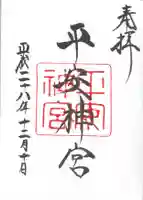 奉拝
平安神宮
平成二十八年十二月十日